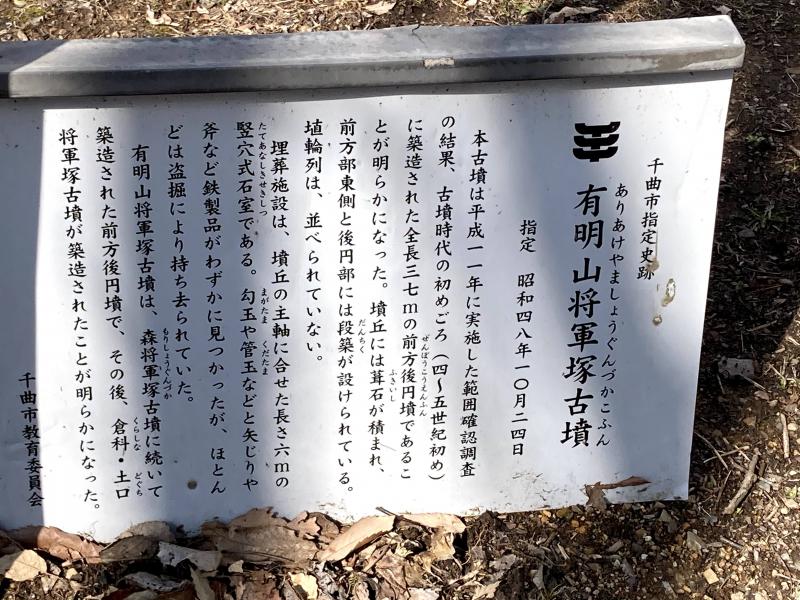 千曲市指定史跡
有明山将軍塚古墳
ありあけやましょうぐんづかこふん
指定 昭和四八年一〇月二四日
本古墳は平成一一年に実施した範囲確認調査
の結果、古墳時代の初めごろ（四～五世紀初め）
に築造された全長三七mの前方後円墳であるこ
ぜんぽうこうえんふん
とが明らかになった。墳丘には葺石が積まれ、
ふきいし
前方部東側と後円部には段築が設けられている。
だんちく
埴輪列は、並べられていない。
埋葬施設は、墳丘の主軸に合せた長さ六mの
竪穴式石室である。勾玉や管玉などと矢じりや
たてあなしきせきしつ まがたま くだたま
斧など鉄製品がわずかに見つかったが、ほとん
どは盗掘により持ち去られていた。
有明山将軍塚古墳は、森将軍塚古墳に続いて
もりしょうぐんづか
築造された前方後円墳で、その後、倉科・土口
くらしな どぐち
将軍塚古墳が築造されたことが明らかになった。
千曲市教育委員会